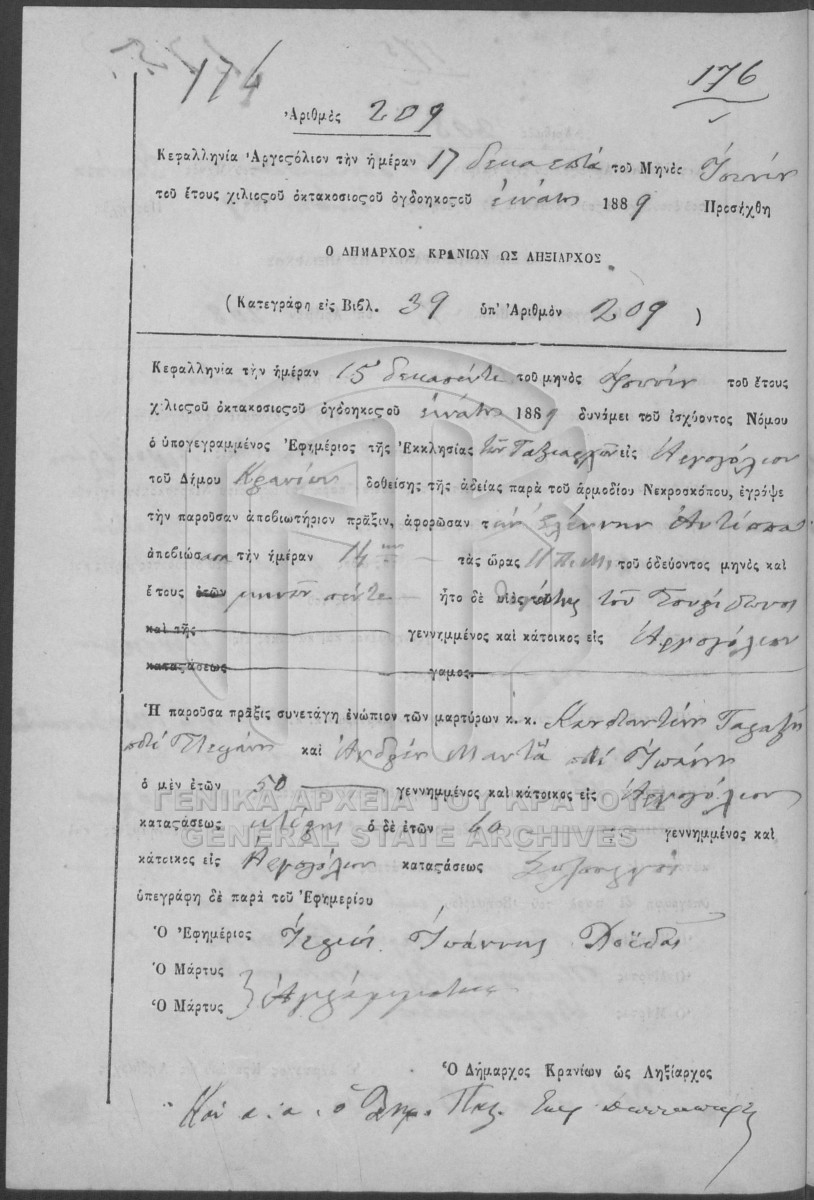 174 176
Ἀριθμὸς 209
Κεφαλληνία Ἀργοστόλιον τὴν ἡμέραν 17 δεκαεπτὰ τοῦ Μηνὸς Ἰουνίου
τοῦ ἔτους χιλιοστοῦ ὀκτακοσιοστοῦ ὀγδοηκοστοῦ ἐννάτου 1889 Προσήχθη
Ο ΔΗΜΑΡΧΟΣ ΚΡΑΝΙΩΝ ΩΣ ΛΗΞΙΑΡΧΟΣ
(Κατεγράφη εἰς Βιβλ. 39 ὑπ' Ἀριθμὸν 209)
Κεφαλληνία τὴν ἡμέραν 15 δεκαπέντε τοῦ μηνὸς Ἰουνίου τοῦ ἔτους
χιλιοστοῦ ὀκτακοσιοστοῦ ὀγδοηκοστοῦ ἐννάτου 1889 δυνάμει τοῦ ἰσχύοντος Νόμου
ὁ ὑπογεγραμμένος Ἐφημέριος τῆς Ἐκκλησίας τῶν Ταξιαρχῶν εἰς Ἀργοστόλιον
τοῦ Δήμου Κρανίων δοθείσης τῆς ἀδείας παρὰ τοῦ ἁρμοδίου Νεκροσκόπου, ἐγράψε
τὴν παροῦσαν ἀποβιωτήριον πρᾶξιν, ἀφορῶσαν τὴν Ἑλένην
ἀποβιώσασα τὴν ἡμέραν 14 τὰς ὥρας 11 π.μ. τοῦ ὁδεύοντος μηνὸς καὶ
ἔτους ἐτῶν μηνῶν πέντε ἦτο δὲ υἱὸς θυγάτηρ τοῦ Σπυρίδωνος
καὶ τῆς γεννημμένος καὶ κάτοικος εἰς Ἀργοστόλιον
καταστάσεως γαμος.
Ἡ παροῦσα πρᾶξις συνετάγη ἐνώπιον τῶν μαρτύρων κ. κ. Κωνσταντίνου
ποτὲ καὶ Ἀνδρέου ποτὲ Ἰωάννη
ὁ μὲν ἐτῶν 50 γεννημμένος καὶ κάτοικος εἰς Ἀργοστόλιον
ΓΕΝΙΚΑ ΑΡΧΕΙΑ ΤΟΥ ΚΡΑΤΟΥΣ
καταστάσεως κτίστης ὁ δὲ ἐτῶν 40 γεννημμένος καὶ
GENERAL STATE ARCHIVES
κάτοικος εἰς Ἀργοστόλιον καταστάσεως ξυλουργὸς
ὑπεγράφη δὲ παρὰ τοῦ Ἐφημερίου
Ὁ Ἐφημέριος Ἱερεὺς Ἰωάννης
Ὁ Μάρτυς
Ὁ Μάρτυς Ἀγράμματοι
Ὁ Δήμαρχος Κρανίων ὡς Ληξίαρχος